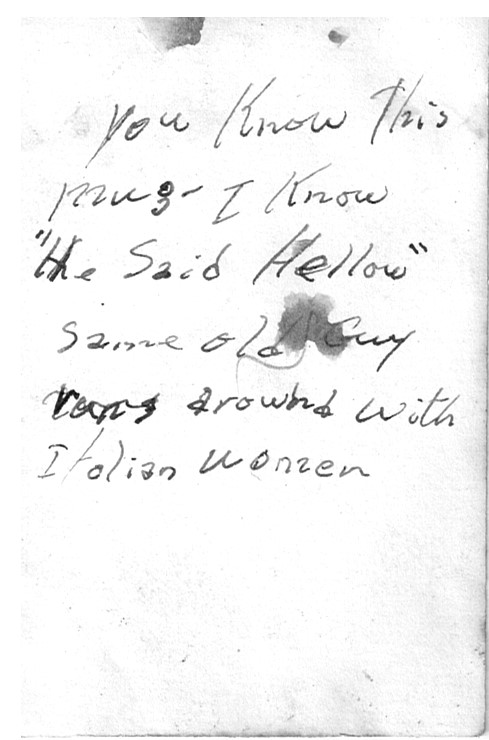 you Know This
mug - I Know
"He Said Hellow"
Same old Guy
runs around with
Italian Women